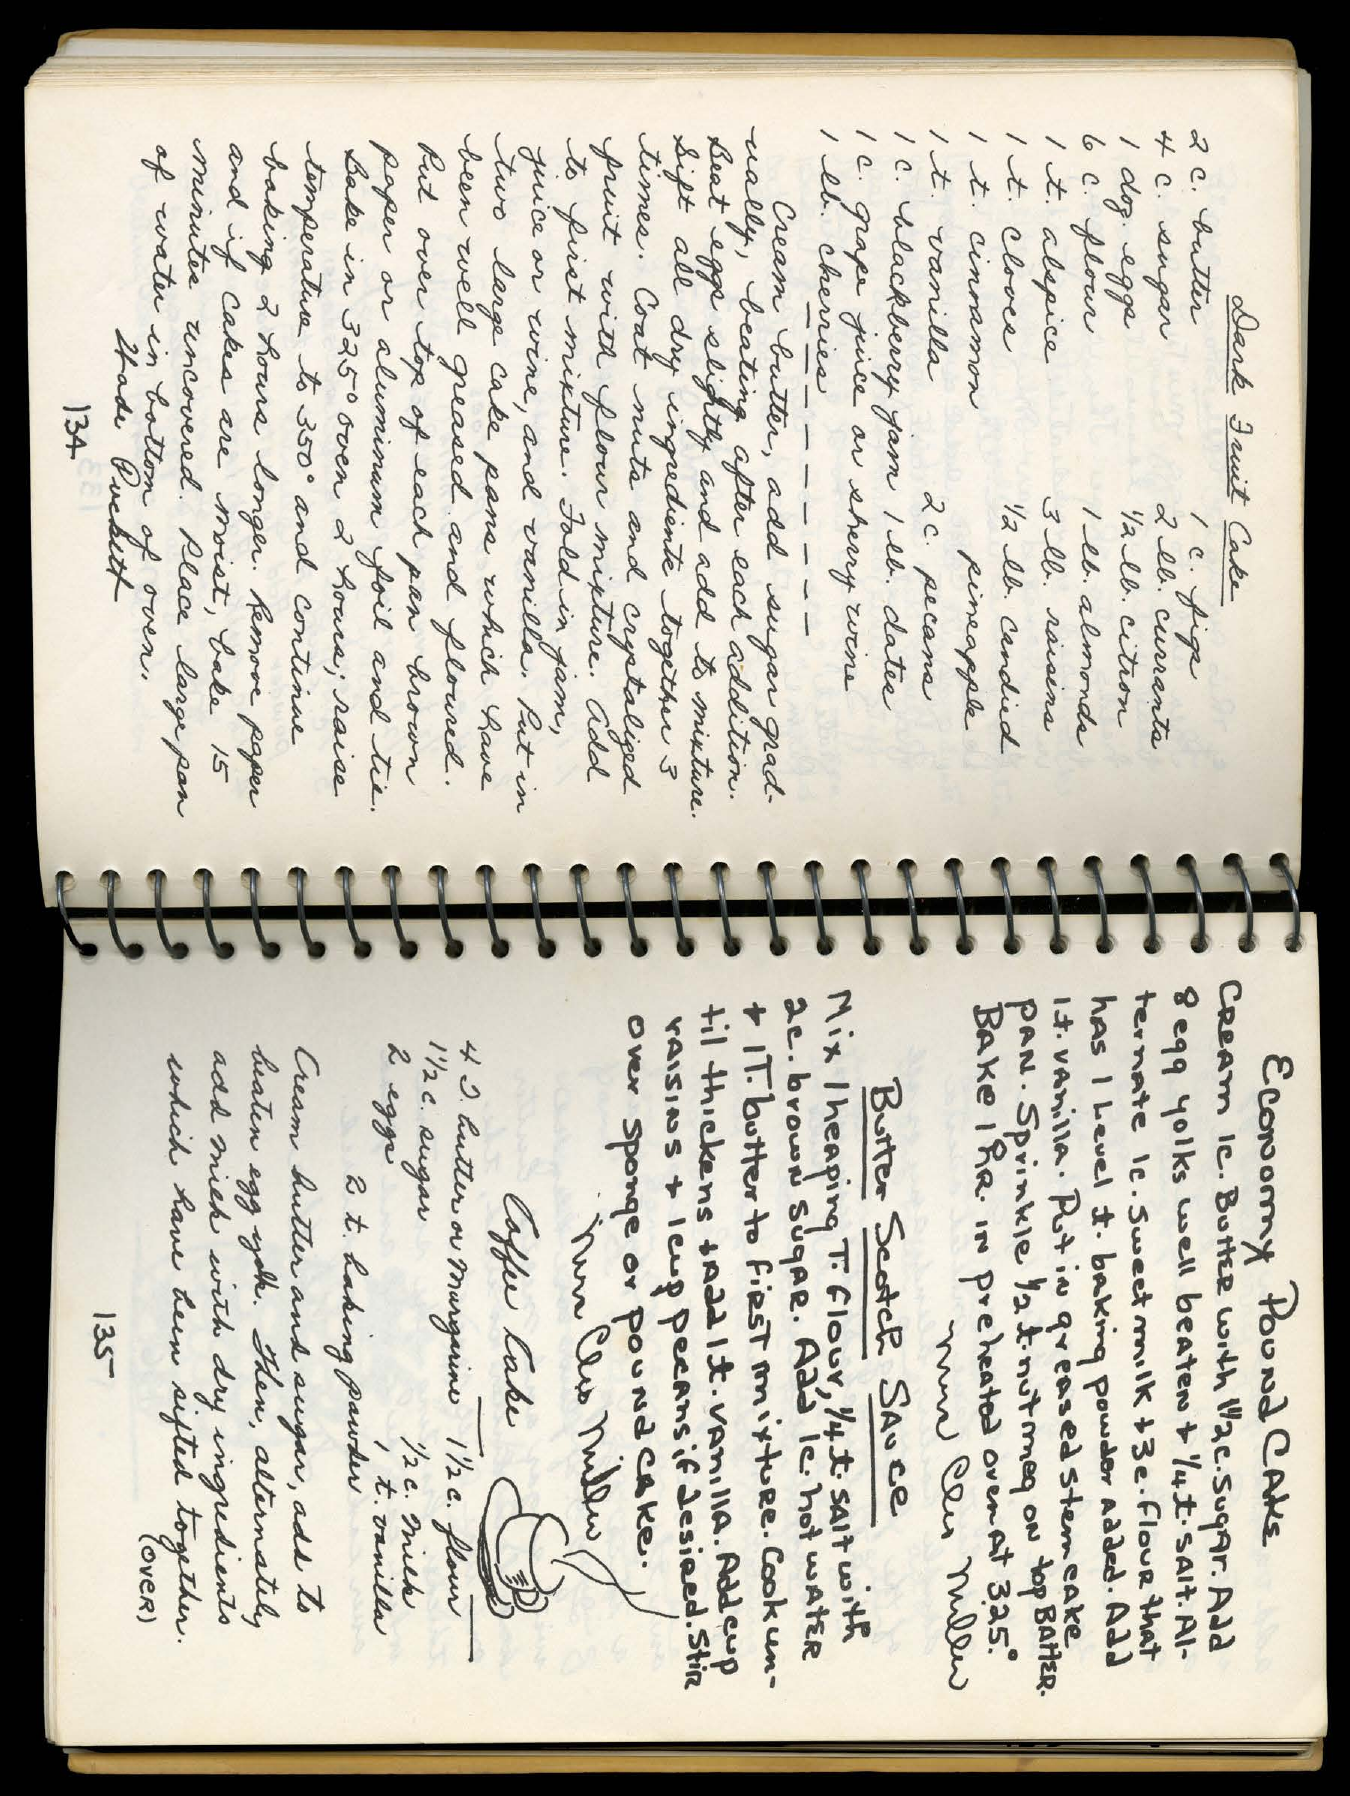 Dark Fruit Cake
2 c. butter 1 c. figs
4 c. sugar 2 lb. currants
1 doz. eggs 1/2 lb. citron
6 c. flour 1 lb. almonds
1 t. alspice 3 lb. raisins
1 t. cloves 1/2 lb. candied
1 t. cinnamon pineapple
1 t. vanilla 2 c. pecans
1 c. blackberry jam 1 lb. dates
1 c. grape juice or sherry wine
1 lb. cherries
Cream butter, add sugar grad-
ually, beating after each addition.
Beat eggs slightly and add to mixture.
Sift all dry ingredients together 3
times. Coat nuts and crystalized
fruit with flour mixture. Add
to first mixture. Fold in jam,
juice or wine, and vanilla. Put in
two large cake pans which have
been well greased and floured.
Put over top of each pan brown
paper or aluminum foil and tie.
Bake in 325° oven 2 hours; raise
temperature to 350° and continue
baking 2 hours longer. Remove paper
and if cakes are moist, bake 15
minutes uncovered. Place large pan
of water in bottom of oven.
Puckett
134
Economy Pound Cake
Cream 1c. Butter with 1 1/2c. Sugar. Add
8 egg yolks well beaten + 1/4 t. salt. Al-
ternate 1c. sweet milk + 3c. flour that
has 1 level t. baking powder added. Add
1t. vanilla. Put in greased stem cake
pan. Sprinkle 1/2 t. nutmeg on top Batter.
Bake 1 hr. in preheated oven at 325°.
Mrs Cleo Miller
Butter Scotch Sauce
Mix 1 heaping T. flour, 1/4 t. salt with
2c. brown sugar. Add 1c. hot water
+ 1T. butter to first mixture. Cook un-
til thickens + Add 1t. vanilla. Add cup
raisins + 1 cup pecans if desired. Stir
over sponge or pound cake.
Mrs Cleo Miller
Coffee Cake
4 T. butter or margarine 1 1/2 c. flour
1 1/2 c. sugar 1/2 c. milk
2 eggs 1 t. vanilla
2 t. baking powder
Cream butter and sugar, add to
beaten egg yolk. Then, alternately
add milk with dry ingredients
which have been sifted together.
(over)
135